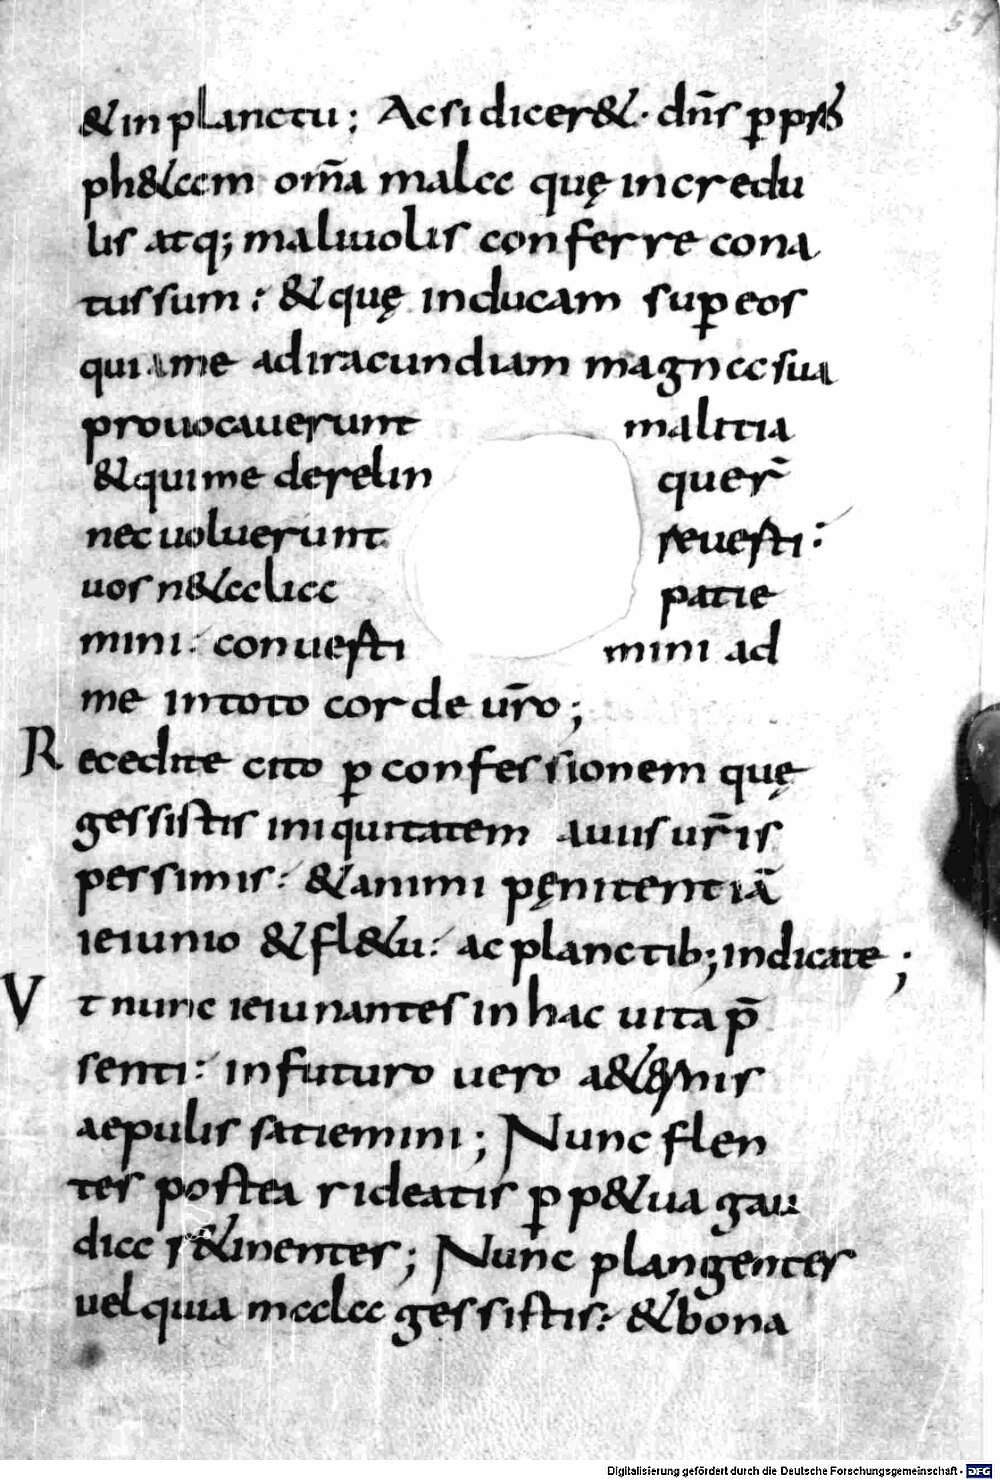 57
&in planctu; Ac si dicer&· dn̄s ꝑ pro
ph&am om̄a mala quę incredu
lis atq; maliuolis conferre cona
tus sum: & quę inducam suꝑ eos
qui me ad iracundiam magna sua
prouocauerunt malitia
& qui me derelin quer̄
nec uoluerunt se uesti:
uos n& alia patie
mini: conuesti mini ad
me in toto corde ur̄o;
Recedite cito ꝑ confessionem quę
gessistis iniquitatem auiis ur̄is
pessimis: & animi pęnitentiā
ieiunio & fl&u: ac planctib; indicate;
Vt nunc ieiunantes in hac uita p̄
senti: in futuro uero a&ernis
aepulis satiemini; Nunc flen
tes postea rideatis ꝑp&ua gau
dia r&inentes; Nunc plangentes
uel quia mala gessistis: & bona
Digitalisierung gefördert durch die Deutsche Forschungsgemeinschaft - DFG